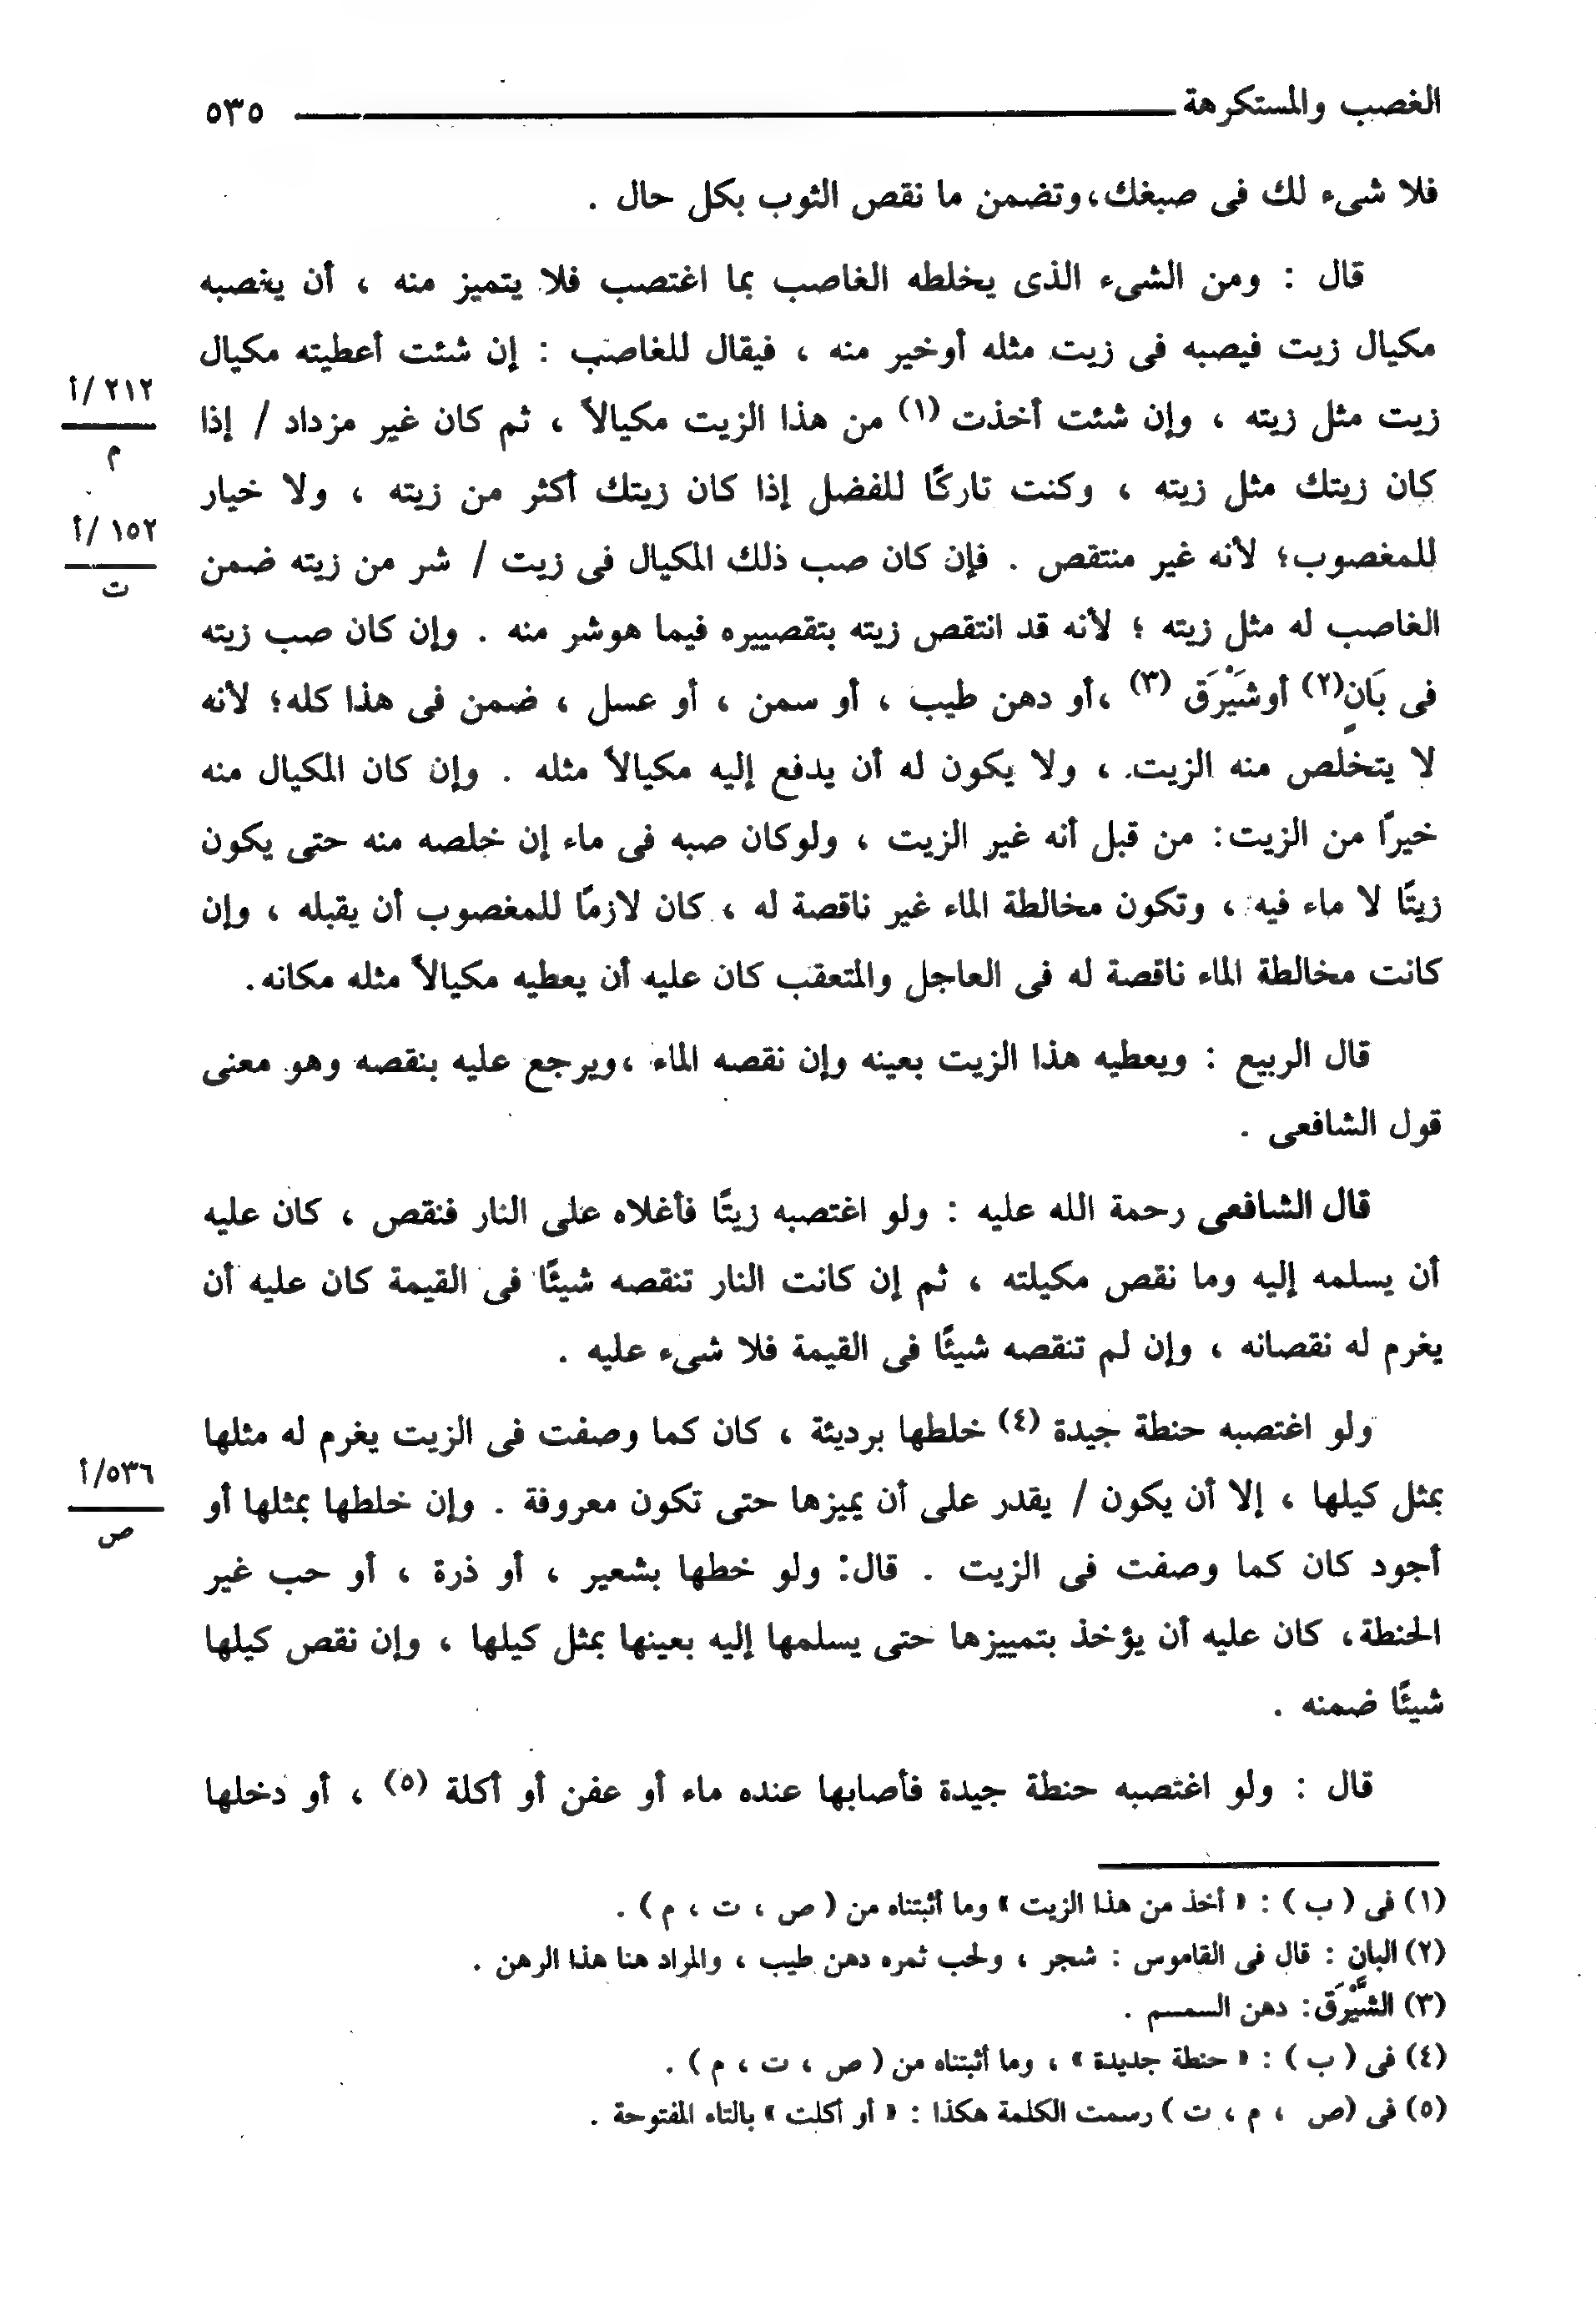 الغصب والمستكرهة ٥٣٥
فلا شىء لك فى صبغك،وتضمن ما نقص الثوب بكل حال .
قال : ومن الشىء الذى يخلطه الغاصب بما اغتصب فلا يتميز منه ، أن يغصبه
مكيال زيت فيصبه فى زيت مثله أوخير منه ، فيقال للغاصب : إن شئت أعطيته مكيال
زيت مثل زيته ، وإن شئت أخذت (١) من هذا الزيت مكيالاً ، ثم كان غير مزداد / إذا
٢١٢ /أ
م
كان زيتك مثل زيته ، وكنت تاركًا للفضل إذا كان زيتك أكثر من زيته ، ولا خيار
للمغصوب؛ لأنه غير منتقص . فإن كان صب ذلك المكيال فى زيت / شر من زيته ضمن
١٥٢ /أ
ت
الغاصب له مثل زيته ؛ لأنه قد انتقص زيته بتقصييره فيما هوشر منه . وإن كان صب زيته
فى بَانٍ(٢) أوشَيْرَق (٣) ،أو دهن طيب ، أو سمن ، أو عسل ، ضمن فى هذا كله؛ لأنه
لا يتخلص منه الزيت ، ولا يكون له أن يدفع إليه مكيالاً مثله . وإن كان المكيال منه
خيرًا من الزيت: من قبل أنه غير الزيت ، ولوكان صبه فى ماء إن خلصه منه حتى يكون
زيتًا لا ماء فيه ، وتكون مخالطة الماء غير ناقصة له ، كان لازمًا للمغصوب أن يقبله ، وإن
كانت مخالطة الماء ناقصة له فى العاجل والمتعقب كان عليه أن يعطيه مكيالاً مثله مكانه.
قال الربيع : ويعطيه هذا الزيت بعينه وإن نقصه الماء ،ويرجع عليه بنقصه وهو معنى
قول الشافعى .
قال الشافعى رحمة الله عليه : ولو اغتصبه زيتًا فأغلاه على النار فنقص ، كان عليه
أن يسلمه إليه وما نقص مكيلته ، ثم إن كانت النار تنقصه شيئًا فى القيمة كان عليه أن
يغرم له نقصانه ، وإن لم تنقصه شيئًا فى القيمة فلا شىء عليه .
ولو اغتصبه حنطة جيدة (٤) خلطها برديئة ، كان كما وصفت فى الزيت يغرم له مثلها
بمثل كيلها ، إلا أن يكون / يقدر على أن يميزها حتى تكون معروفة . وإن خلطها بمثلها أو
٥٣٦/أ
ص
أجود كان كما وصفت فى الزيت . قال: ولو خطها بشعير ، أو ذرة ، أو حب غير
الحنطة، كان عليه أن يؤخذ بتمييزها حتى يسلمها إليه بعينها بمثل كيلها ، وإن نقص كيلها
شيئًا ضمنه .
قال : ولو اغتصبه حنطة جيدة فأصابها عنده ماء أو عفن أو أكلة (٥) ، أو دخلها
(١) فى ( ب ) : « أخذ من هذا الزيت » وما أثبتناه من ( ص ، ت ، م ) .
(٢) البان : قال فى القاموس : شجر ، ولحب ثمره دهن طيب ، والمراد هنا هذا الرهن .
(٣) الشَّيْرَق: دهن السمسم .
(٤) فى ( ب ) : « حنطة جديدة » ، وما أثبتناه من ( ص ، ت ، م ) .
(٥) فى (ص ، م ، ت ) رسمت الكلمة هكذا : « أو أكلت » بالتاء المفتوحة .